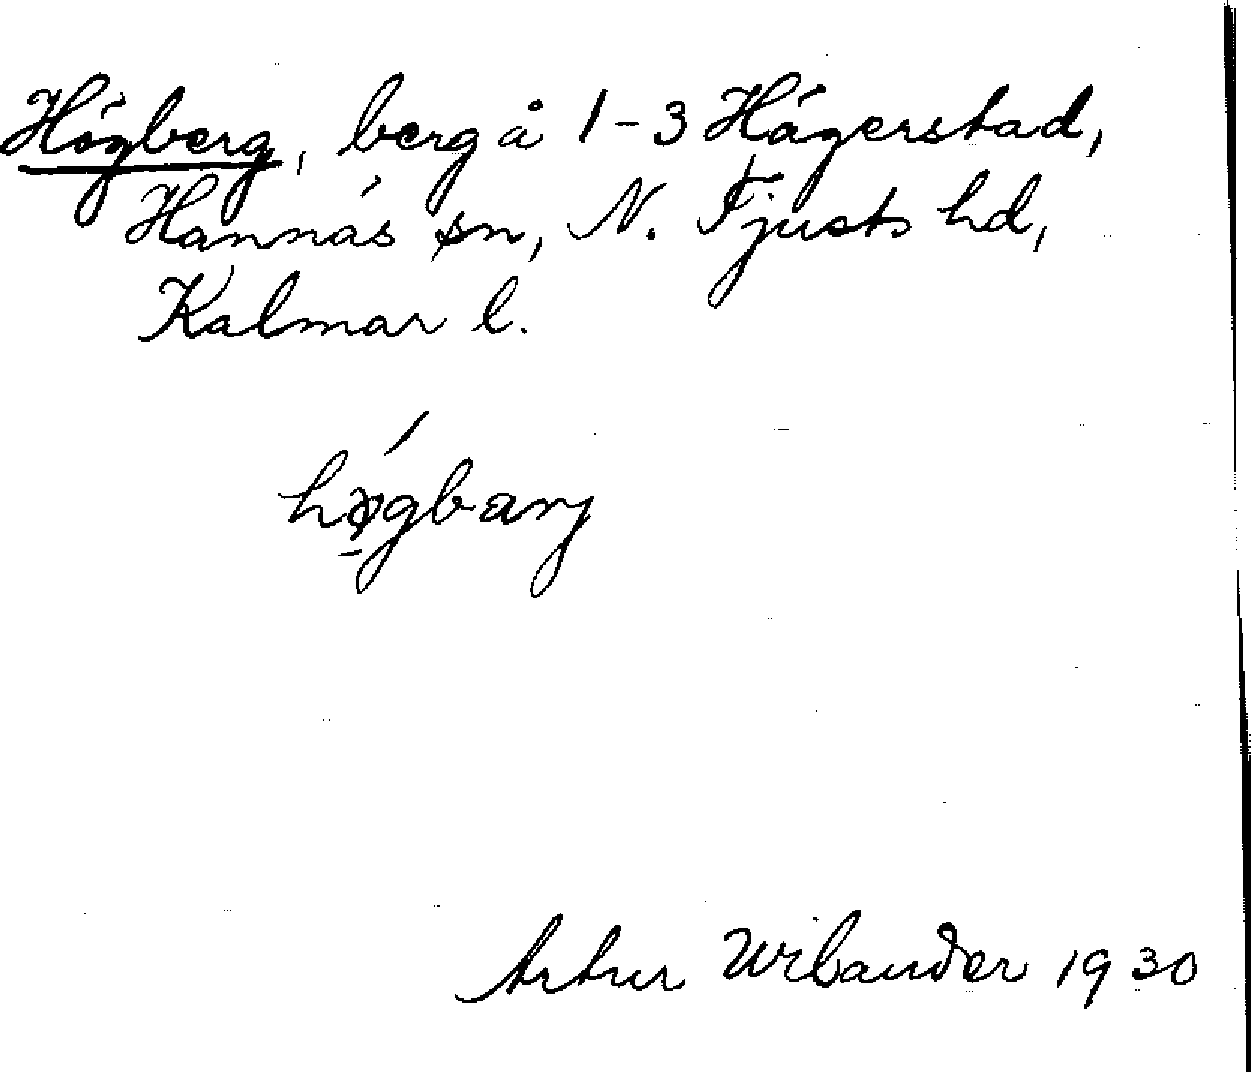 Högberg, berg å 1-3 Hägerstad,
Hannäs sn, N. Tjusts hd,
Kalmar l.
høgbarj
Artur Wilander 1930